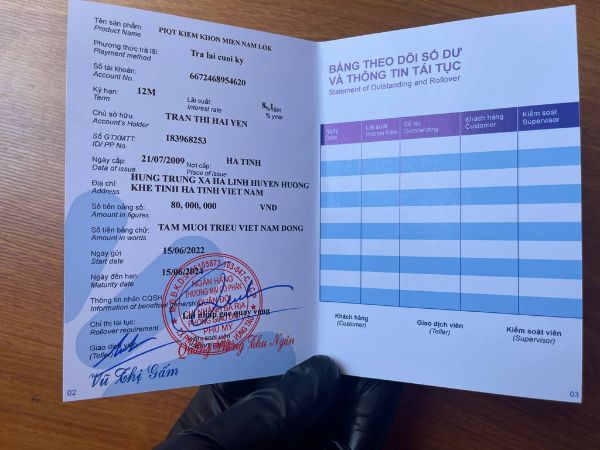 Tên sản phẩm: PIQT KIEM KHON MIEN NAM LOK
Product Name
Phương thức trả lãi: Tra lai cuoi ky
Playment method
Số tài khoản: 6672468954620
Account No.
Kỳ hạn: 12M Lãi suất: 8,1 %/năm
Term Interest rate % year
Chủ sở hữu: TRAN THI HAI YEN
Account's Holder
Số GTXMTT: 183968253
ID/ PP No.
Ngày cấp: 21/07/2009 Nơi cấp: HA TINH
Data of issue Place of issue
Địa chỉ: HUNG TRUNG XA HA LINH HUYEN HUONG
Address KHE TINH HA TINH VIET NAM
Số tiền bằng số: 80,000,000 VND
Amount in figures
Số tiền bằng chữ: TAM MUOI TRIEU VIET NAM DONG
Amount in words
Ngày gửi 15/06/2022
Start date
Ngày đến hạn 15/06/2024
Maturity date
Thông tin nhân CQSH
Information of beneficial ownership
Chỉ thị tái tục: Lai nhap goc quay vong
Rollover requirement
Giao dịch viên
(Teller)
NGÂN HÀNG
THƯƠNG MẠI CỔ PHẦN
QUÂN ĐỘI
BÀ RỊA
PHÒNG GIAO DỊCH
PHÚ MỸ
Thu Ngân
Vũ Thị Gấm
02
BẢNG THEO DÕI SỐ DƯ
VÀ THÔNG TIN TÁI TỤC
Statement of Outstanding and Rollover
Ngày Lãi suất Số dư Khách hàng Kiểm soát
Date Interest Rate Outstanding Customer Supervisor
Khách hàng Giao dịch viên Kiểm soát viên
(Customer) (Teller) (Supervisor)
03